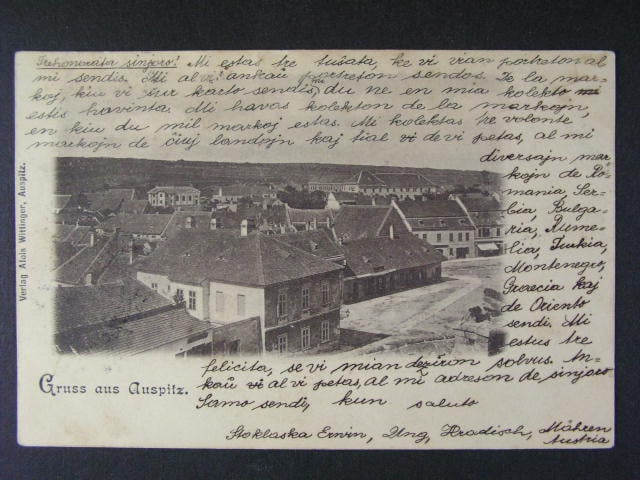 Trehonorata sinjoro! Mi estas tre tuŝata, ke vi vian portreton al
mi sendis. Mi al vi ankaŭ mi portreton sendos. De la mar-
koj, kiu vi sur karto sendis, du ne en mia kolekto
estis havinta. Mi havas kolekton de la markojn,
en kiu du mil markoj estas. Mi kolektas tre volonte
markojn de ĉiuj landojn kaj tial vi devi petas, al mi
diversajn mar-
kojn de Ru-
mania, Ser-
bia, Bulga-
ria, Rume-
lia, Turkia,
Montenegro,
Graecia kaj
de Oriento
sendi. Mi
estus tre
felicita, se vi mian dezirom solvus. An-
kaŭ vi al vi petas, al mi adreson de sinjoro
Samo sendi, kun saluto
Stoklaska Ernin, Ung. Hradisch, Mähren
Austria
Gruss aus Auspitz.
Verlag Alois Wittinger, Auspitz.